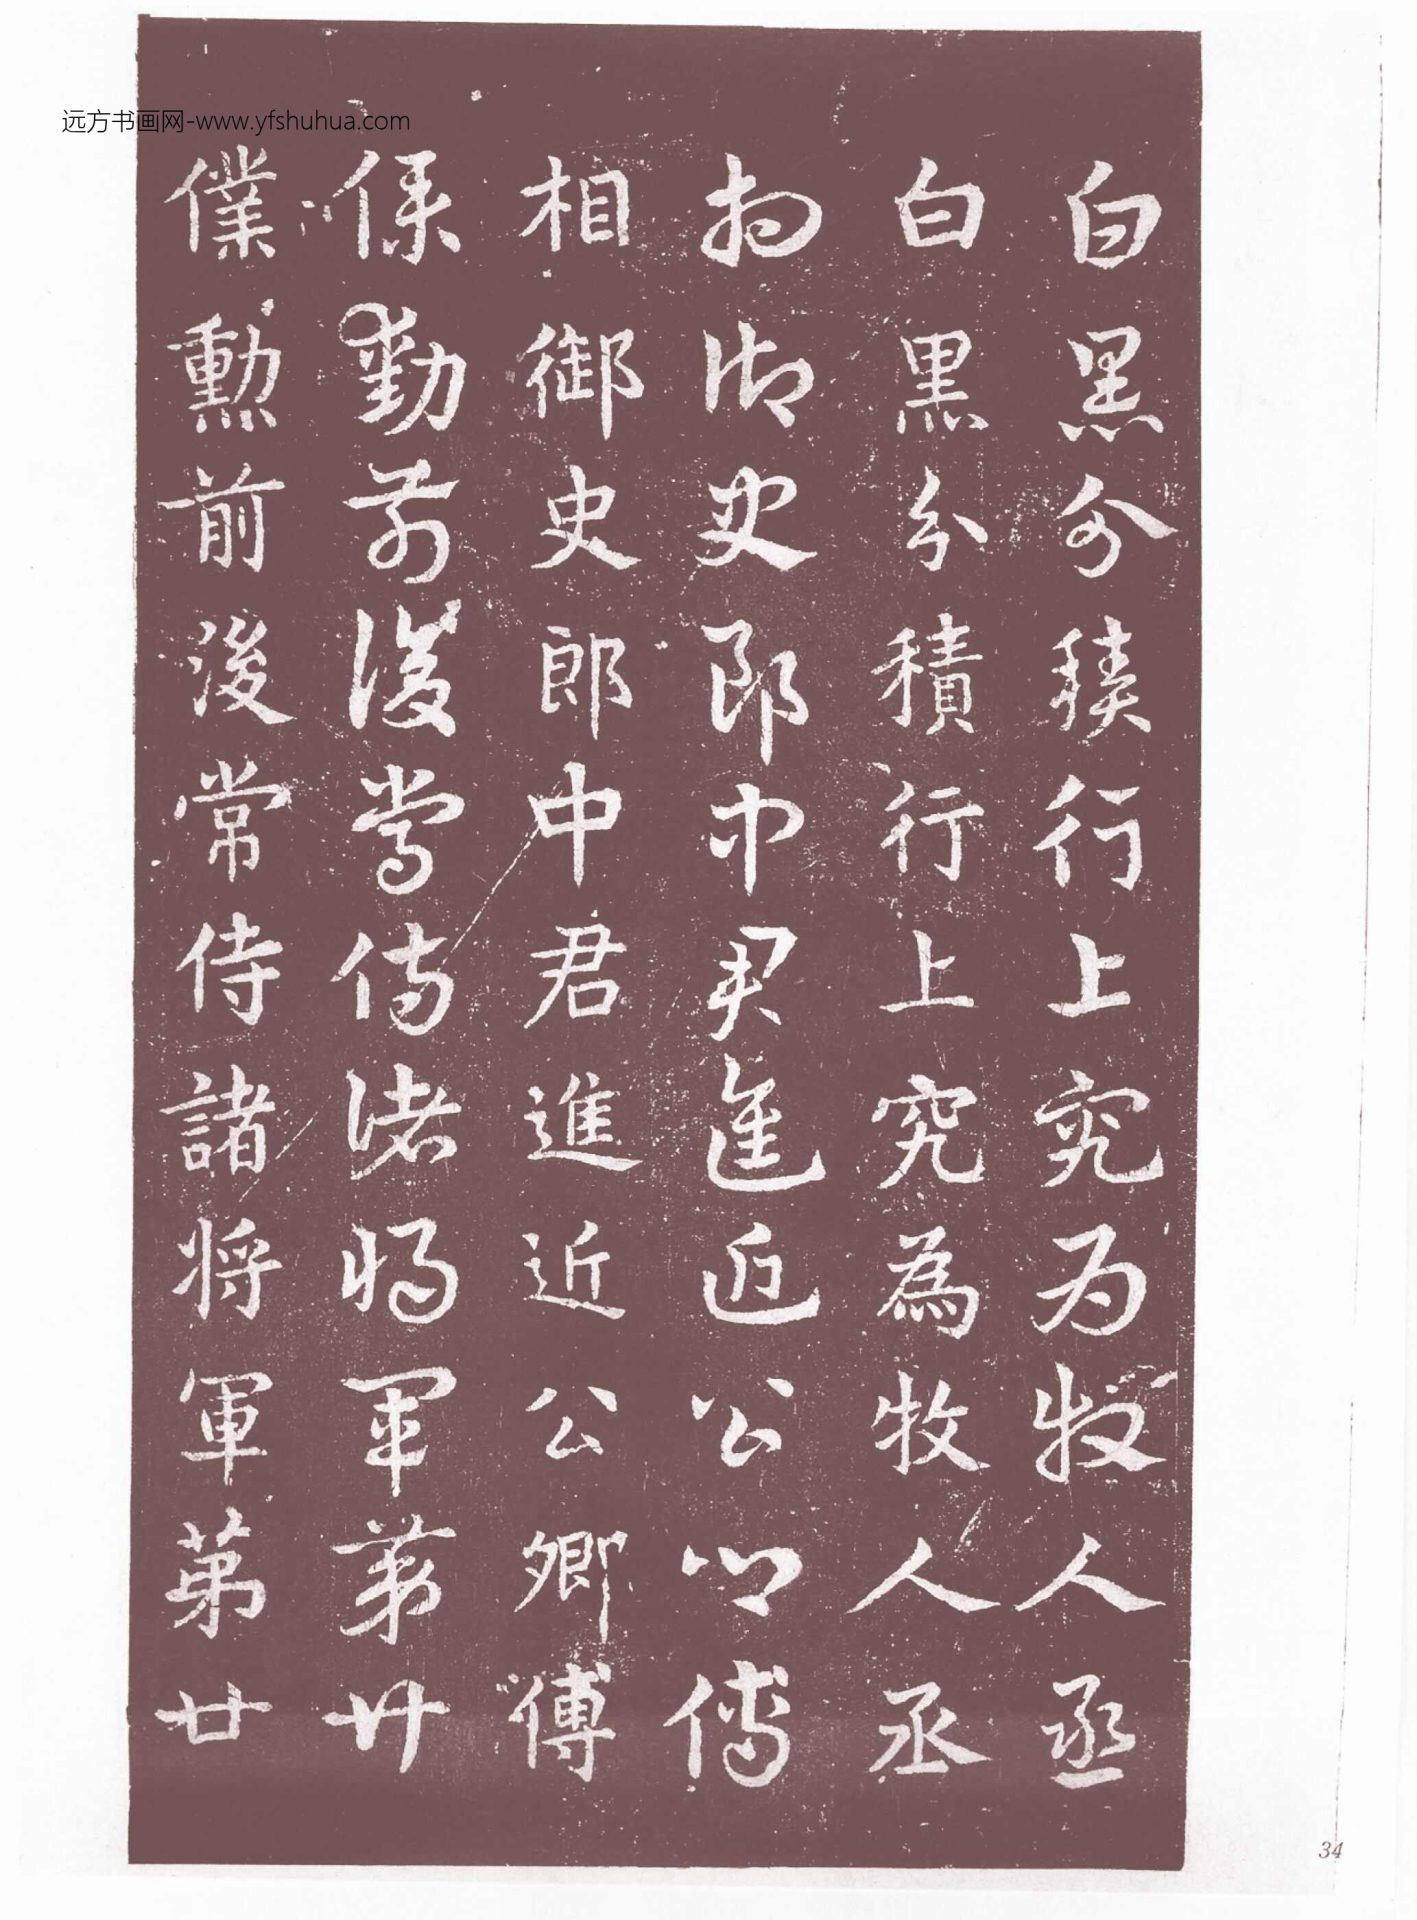 远方书画网-www.yfshuhua.com
白黑分積行上究为牧人丞
白黑分積行上究為牧人丞
相御史郎中君進近公卿傅
相御史郎中君進近公卿傅
僕勳前後常侍諸将軍第廿
僕勳前後常侍諸将軍第廿
34